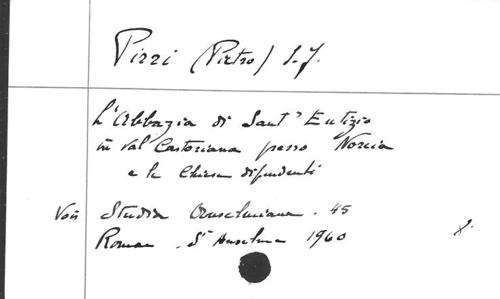 Pirri (Pietro) S.J.
L'Abbazia di Sant' Eutizio
in Val Castoriana presso Norcia
e le Chiese dipendenti
Voir Studia Anselmiana . 45
Romae . St Anselme 1960